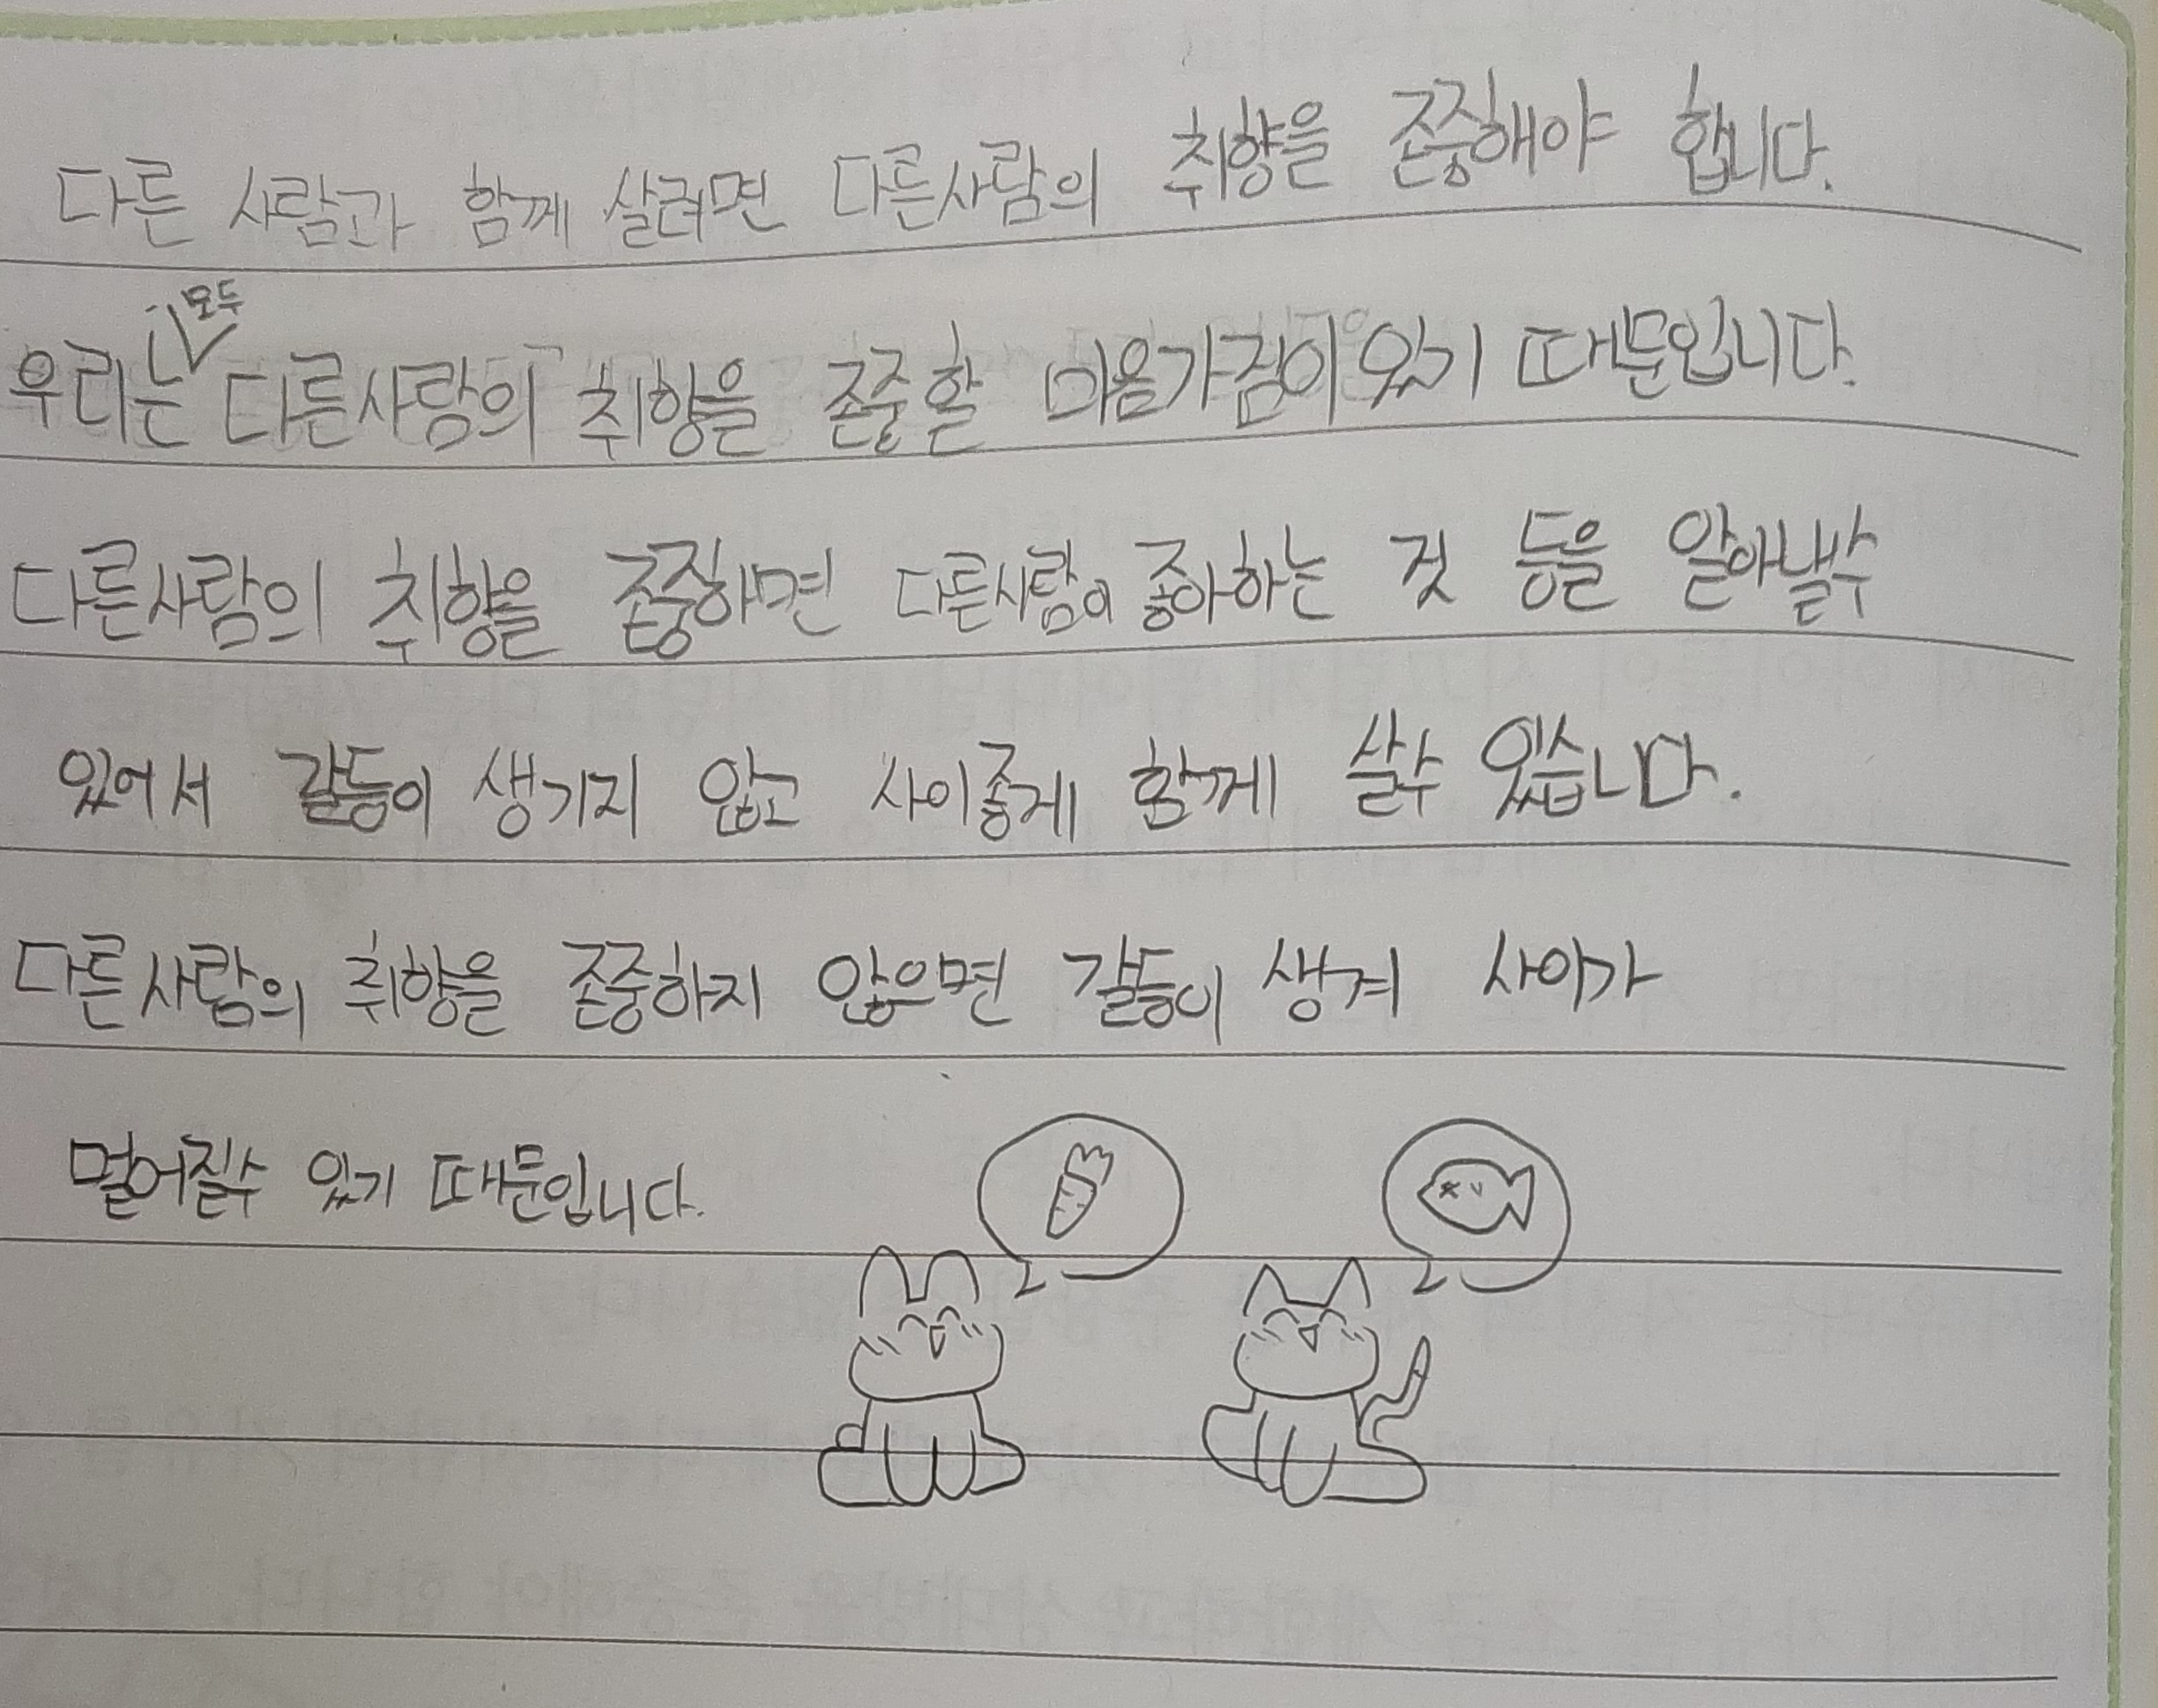 다른 사람과 함께 살려면 다른사람의 취향을 존중해야 합니다.
우리는 모두 다른사람의 취향을 존중할 마음가짐이 있기 때문입니다.
다른사람의 취향을 존중하면 다른사람이 좋아하는 것 등을 알아낼수
있어서 갈등이 생기지 않고 사이좋게 함께 살수 있습니다.
다른사람의 취향을 존중하지 않으면 갈등이 생겨 사이가
멀어질수 있기 때문입니다.